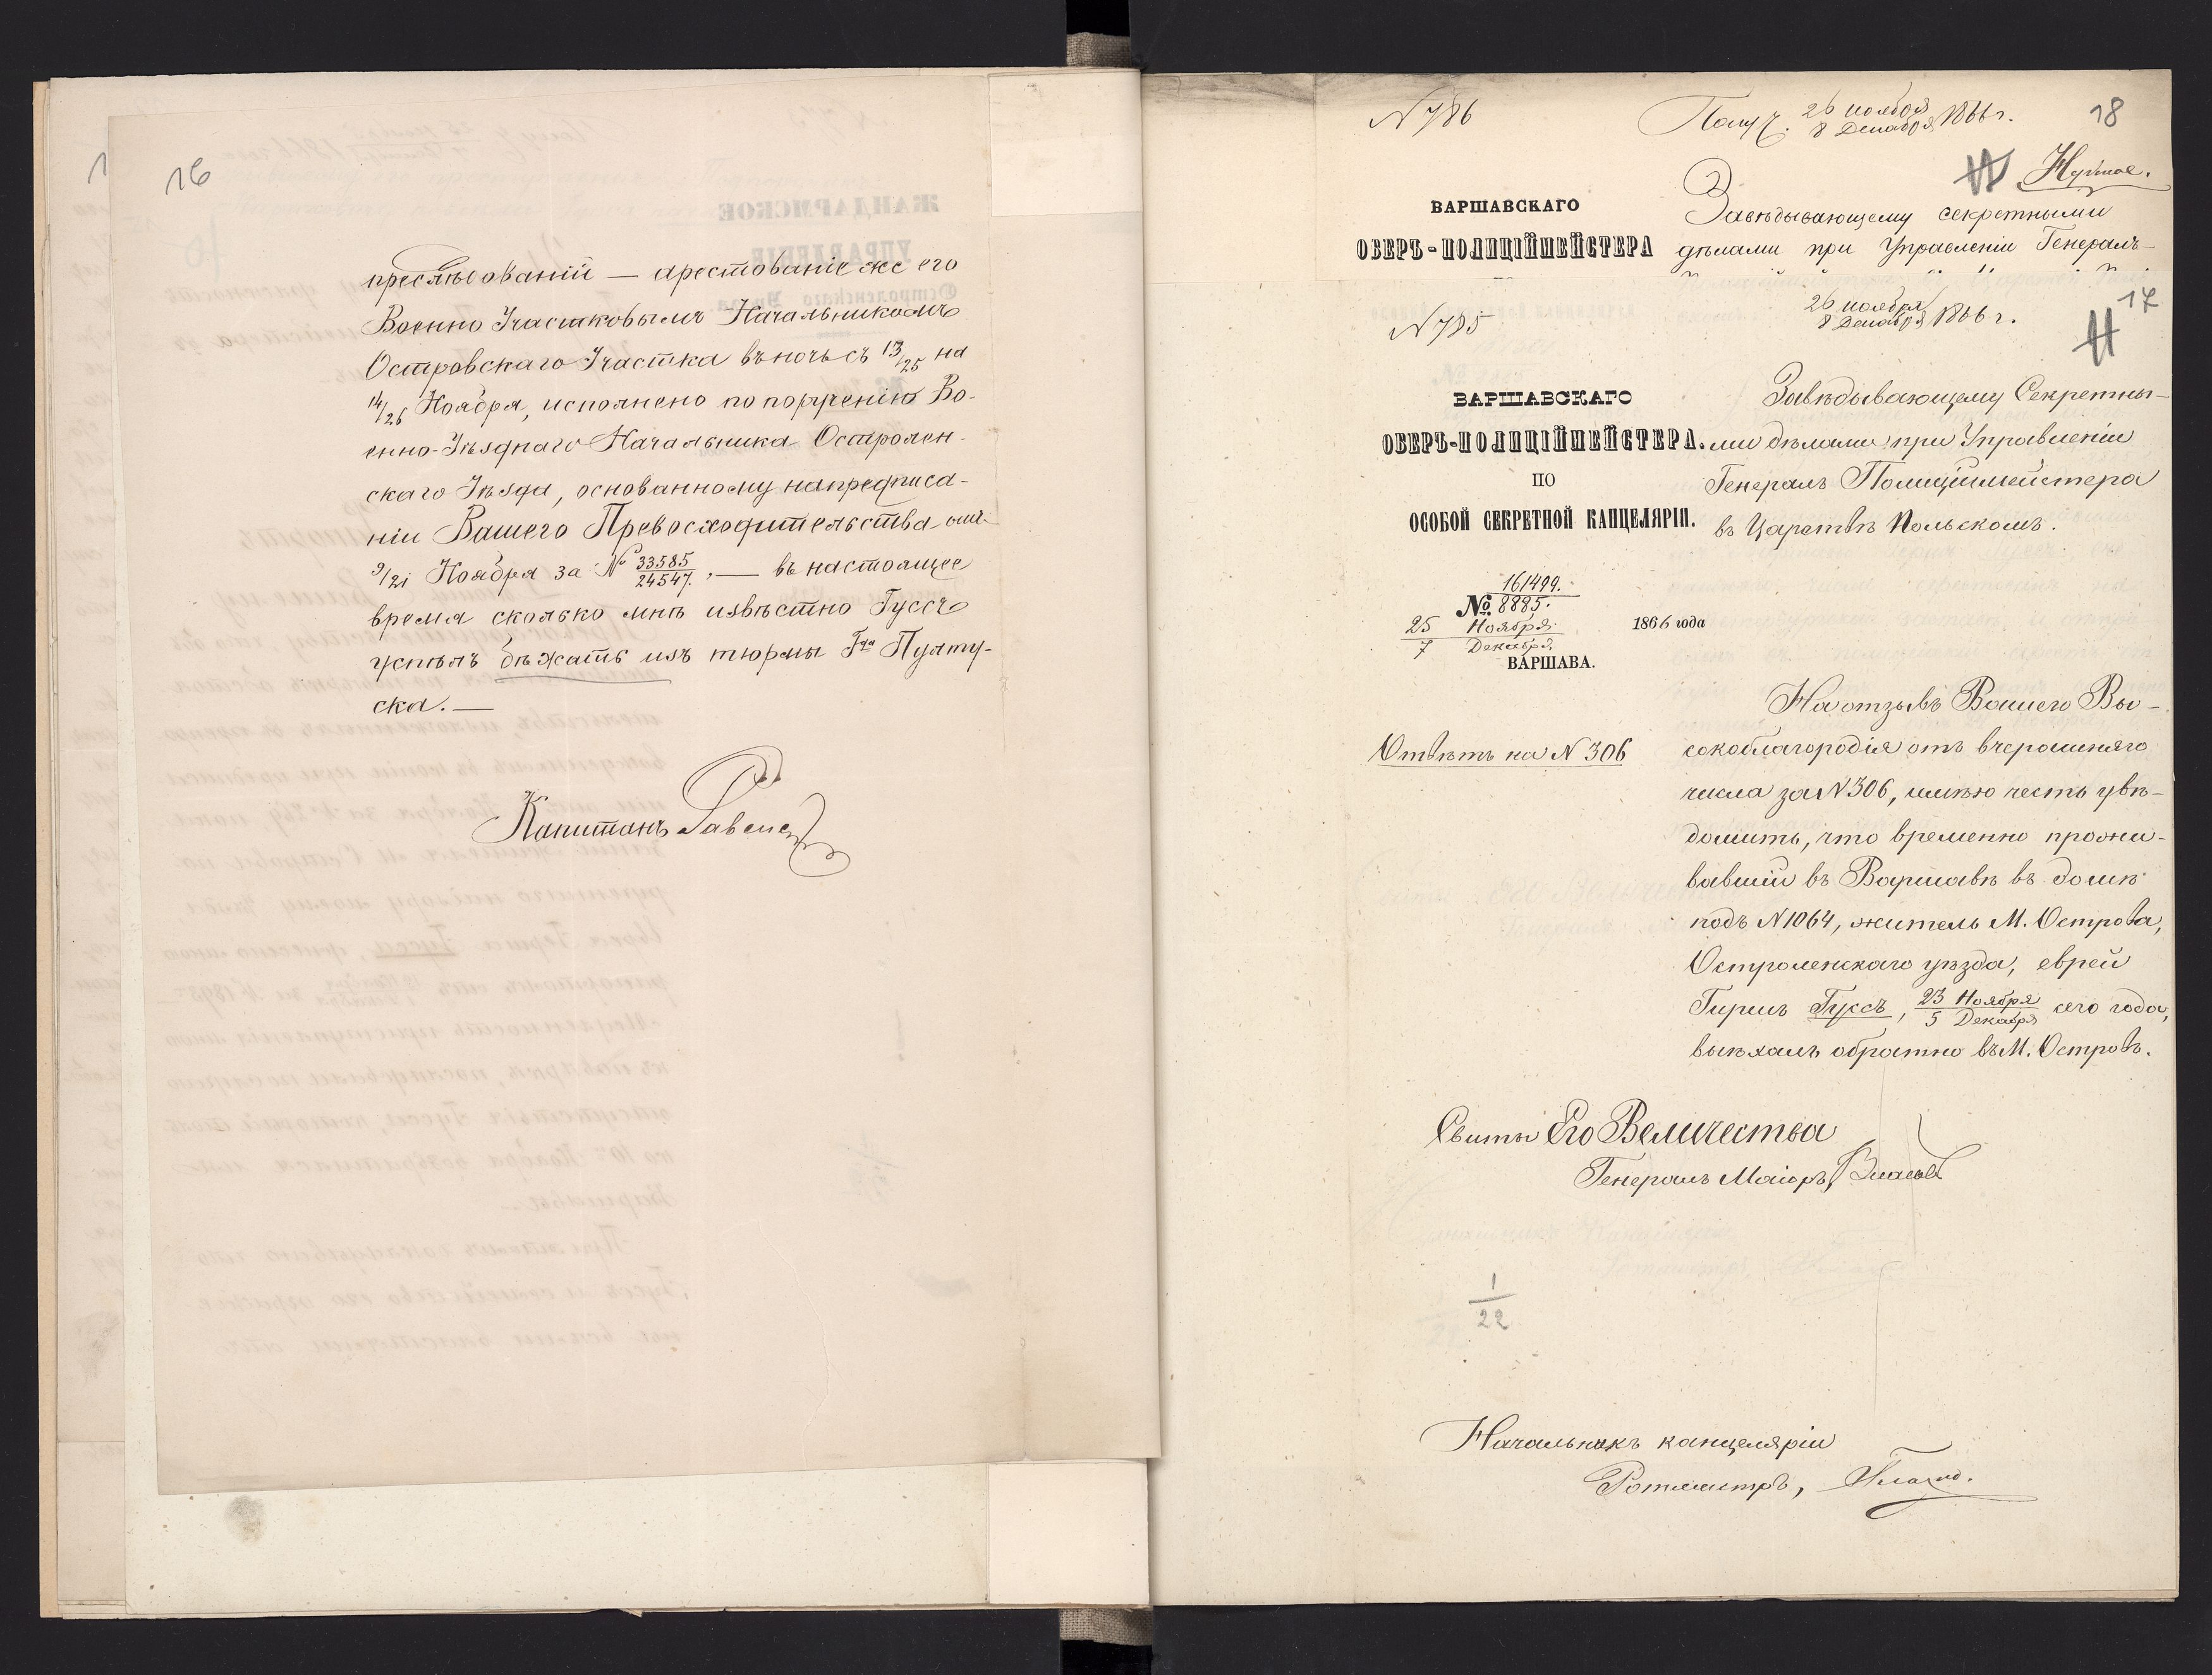 16
преслѣдованій — арестованіе же его
Военно Участковымъ Начальникомъ
Островскаго Участка въ ночь съ 13/25 на
14/26 Ноября, исполнено по порученію Во-
енно-Уѣзднаго Начальника Остролен-
скаго Уѣзда, основанному на предписа-
ніи Вашего Превосходительства отъ
9/21 Ноября за № 33585/24547. — въ настоящее
время сколько мнѣ извѣстно Гуссъ
успѣлъ бѣжать изъ тюрьмы Гда Пулту-
ска. —
Капитанъ
N 786
Получ. 26 ноября/8 Декабря 1866 г.
18
ВАРШАВСКАГО
ОБЕРЪ-ПОЛИЦІЙМЕЙСТЕРА
Завѣдывающему секретными
дѣлами при Управленіи Генералъ-
N 785
26 ноября/8 Декабря 1866 г.
17
ВАРШАВСКАГО
ОБЕРЪ-ПОЛИЦІЙМЕЙСТЕРА.
ПО
ОСОБОЙ СЕКРЕТНОЙ КАНЦЕЛЯРІИ.
161499.
№ 8885.
25 Ноября/7 Декабря 1866 года
ВАРШАВА.
Завѣдывающему Секретны-
ми дѣлами при Управленіи
Генералъ Полиціймейстера
въ Царствѣ Польскомъ.
Отвѣтъ на N 306
На отзывъ Вашего Вы-
сокоблагородія отъ вчерашняго
числа за N 306, имѣю честь увѣ-
домить, что временно прожи-
вавшій въ Варшавѣ въ домѣ
подъ N 1064, житель М. Острова,
Остроленскаго уѣзда, еврей
Гиршъ Гуссъ, 23 Ноября/5 Декабря сего года,
выѣхалъ обратно въ М. Островъ.
Свиты Его Величества
Генералъ Маіоръ,
1/22
Начальникъ канцеляріи
Ротмистръ,